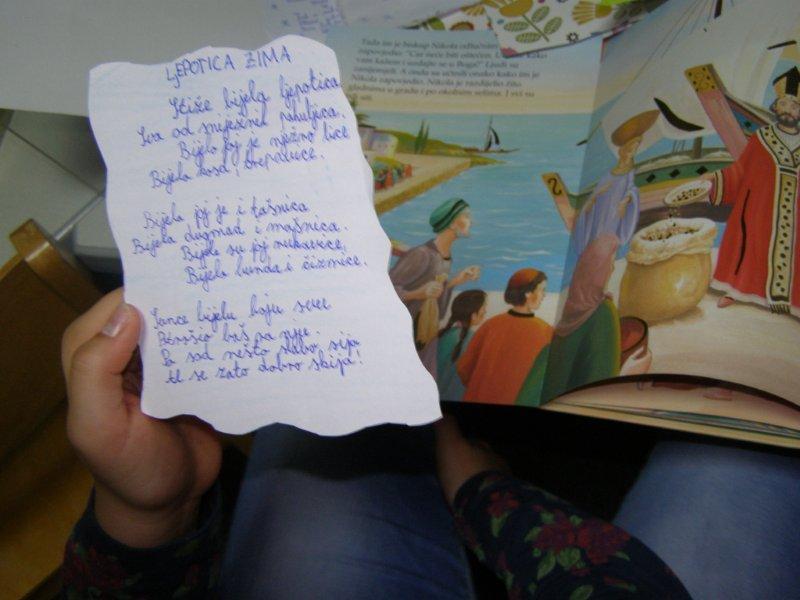 LJEPOTICA ZIMA
Stiže bijela ljepotica
Sva od snježnih pahuljica.
Bijelo joj je nježno lice
Bijela kosa, trepavice.
Bijela joj je i tašnica
Bijela dugmad i mašnica.
Bijele su joj rukavice,
Bijela bunda i čizmice.
Sunce bijelu boju sve
baš na nju.
Pa sad nešto slabo sija
Al se zato dobro skija!
Tada im je biskup Nikola odlučnim
zapovjedio: "Car neće biti oštećen.
vam kažem i uzdajte se u Boga!" Ljudi su
zanijemjeli. A onda su učinili onako kako im je
Nikola zapovjedio. Nikola je razdijelio žito
gladnima u gradu i po okolnim selima. I svi su
siti.